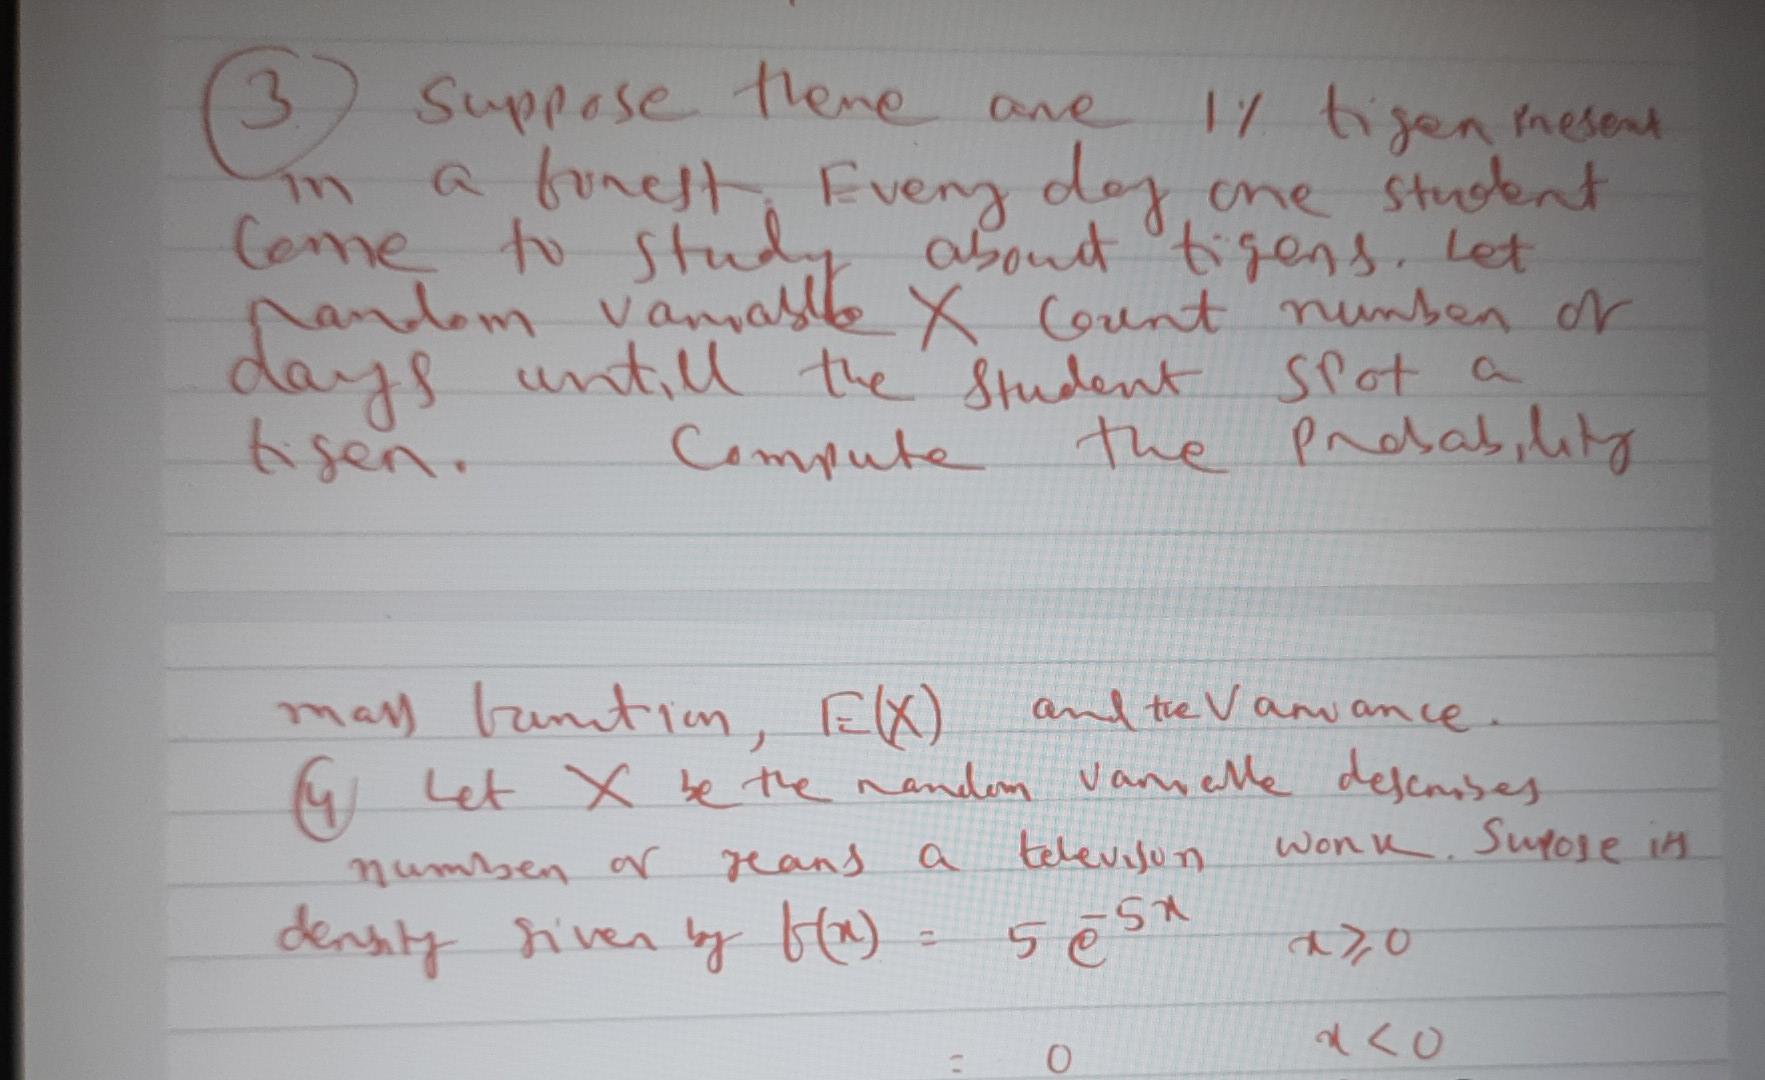 3 Suppose there are 1% tiger present
in a forest. Every day one student
come to study about tigers. Let
random variable X count number of
days untill the student spot a
tiger. Compute the probability
mass function, E(X) and the Variance.
4 Let X be the random variable describes
number of years a televison work. Supose its
density given by f(x) = 5 e^-5x x ≥ 0
= 0 x < 0